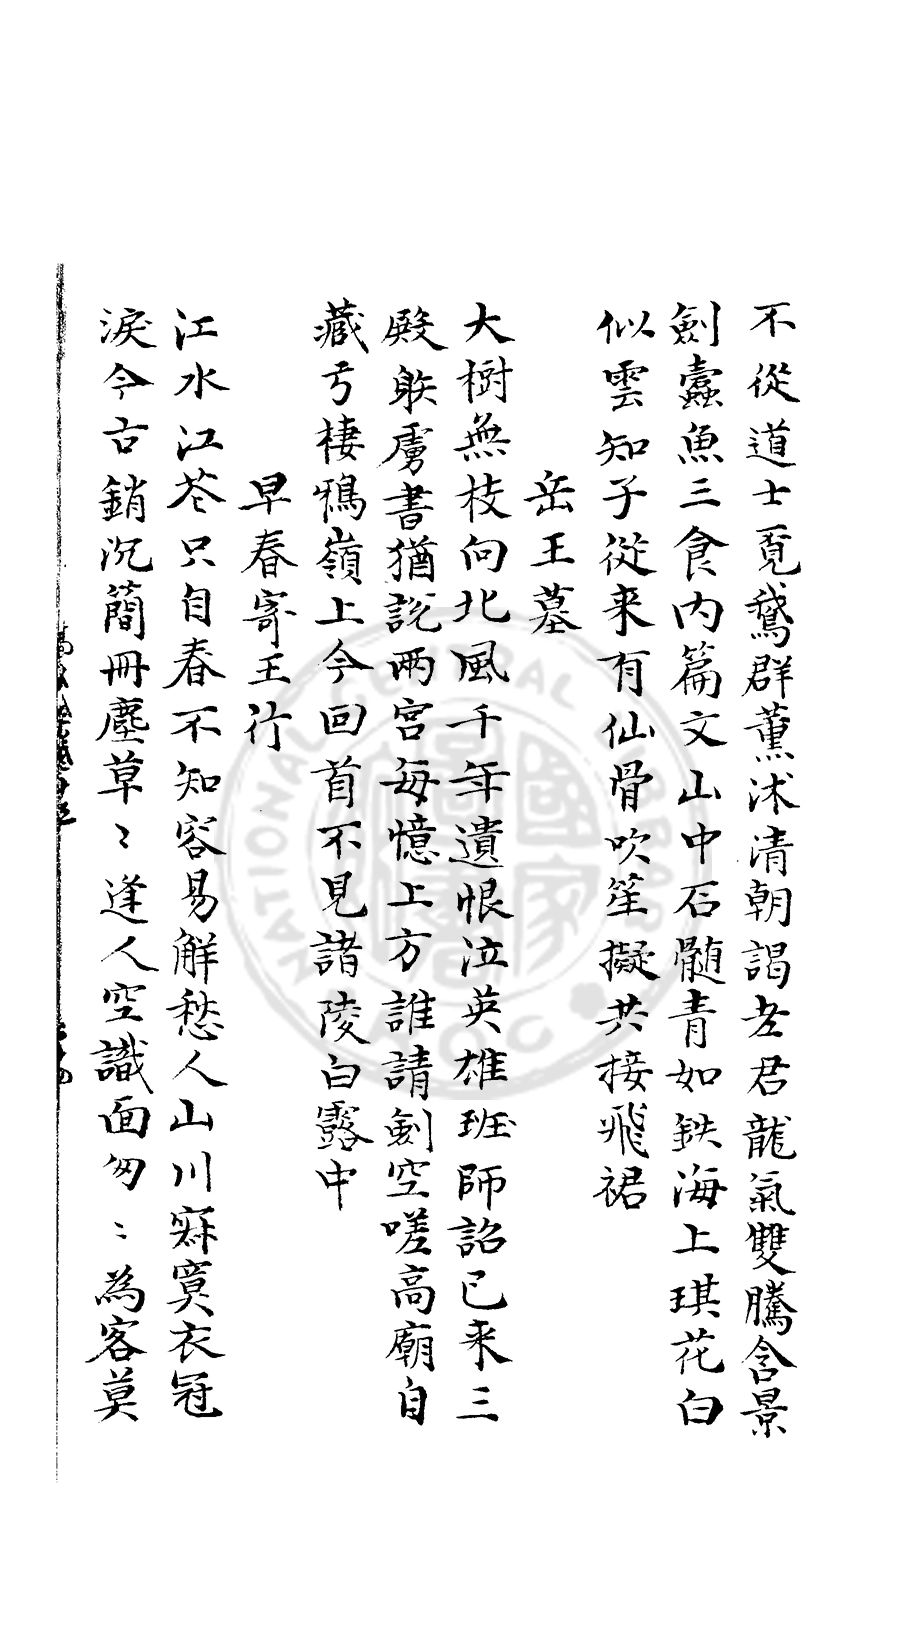 不從道士覓鵝群薰沭清朝謁老君龍氣雙騰含景
劍蠹魚三食內篇文山中石髓青如鉄海上琪花白
似雲知子從来有仙骨吹笙擬共接飛裙
岳王墓
大樹無枝向北風千年遺恨泣英雄班師詔已来三
殿躲虜書猶說兩宮每憶上方誰請劍空嗟高廟自
藏弓棲鴉嶺上今回首不見諸陵白露中
早春寄王行
江水江花只自春不知容易解愁人山川寂寞衣冠
淚今古銷沉簡冊塵草〻逢人空識面匆〻為客莫
NATIONAL CENTRAL LIBRARY
國家圖書館